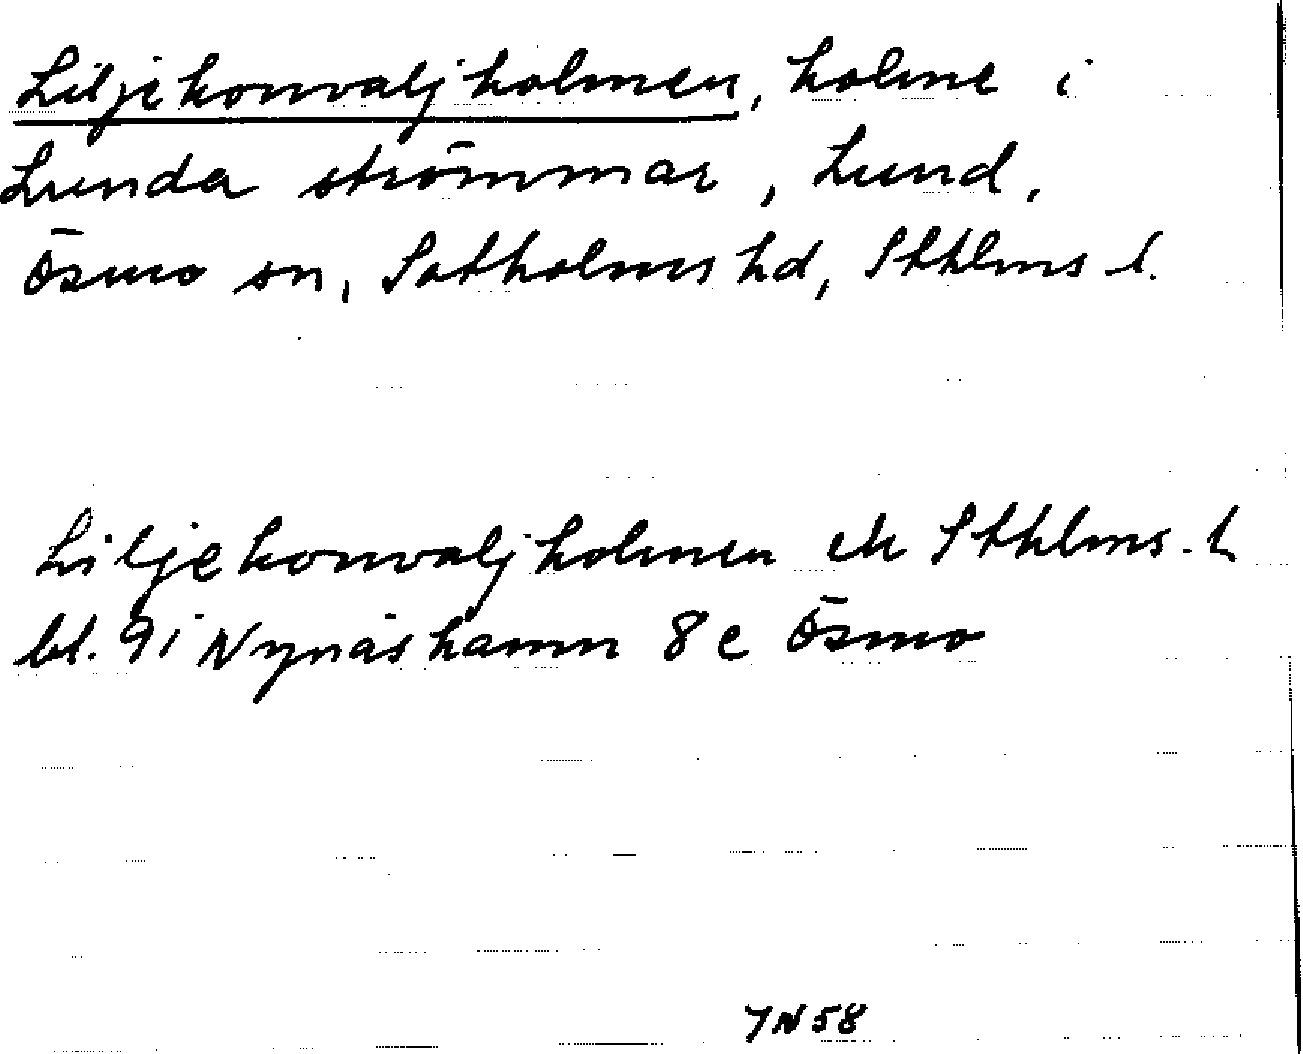 Liljekonvaljholmen, holme i
Lunda strömmar, Lund,
Ösmo sn, Sotholms hd, Sthlms l.
Liljekonvaljholmen ek Sthlms. l
bl. 91 Nynäshamn 8 e Ösmo
7 N 58